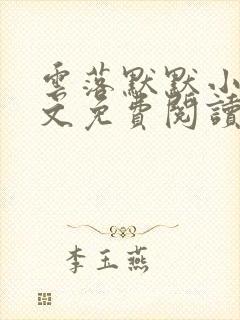 雲落默默小
文免費閱讀
李玉燕